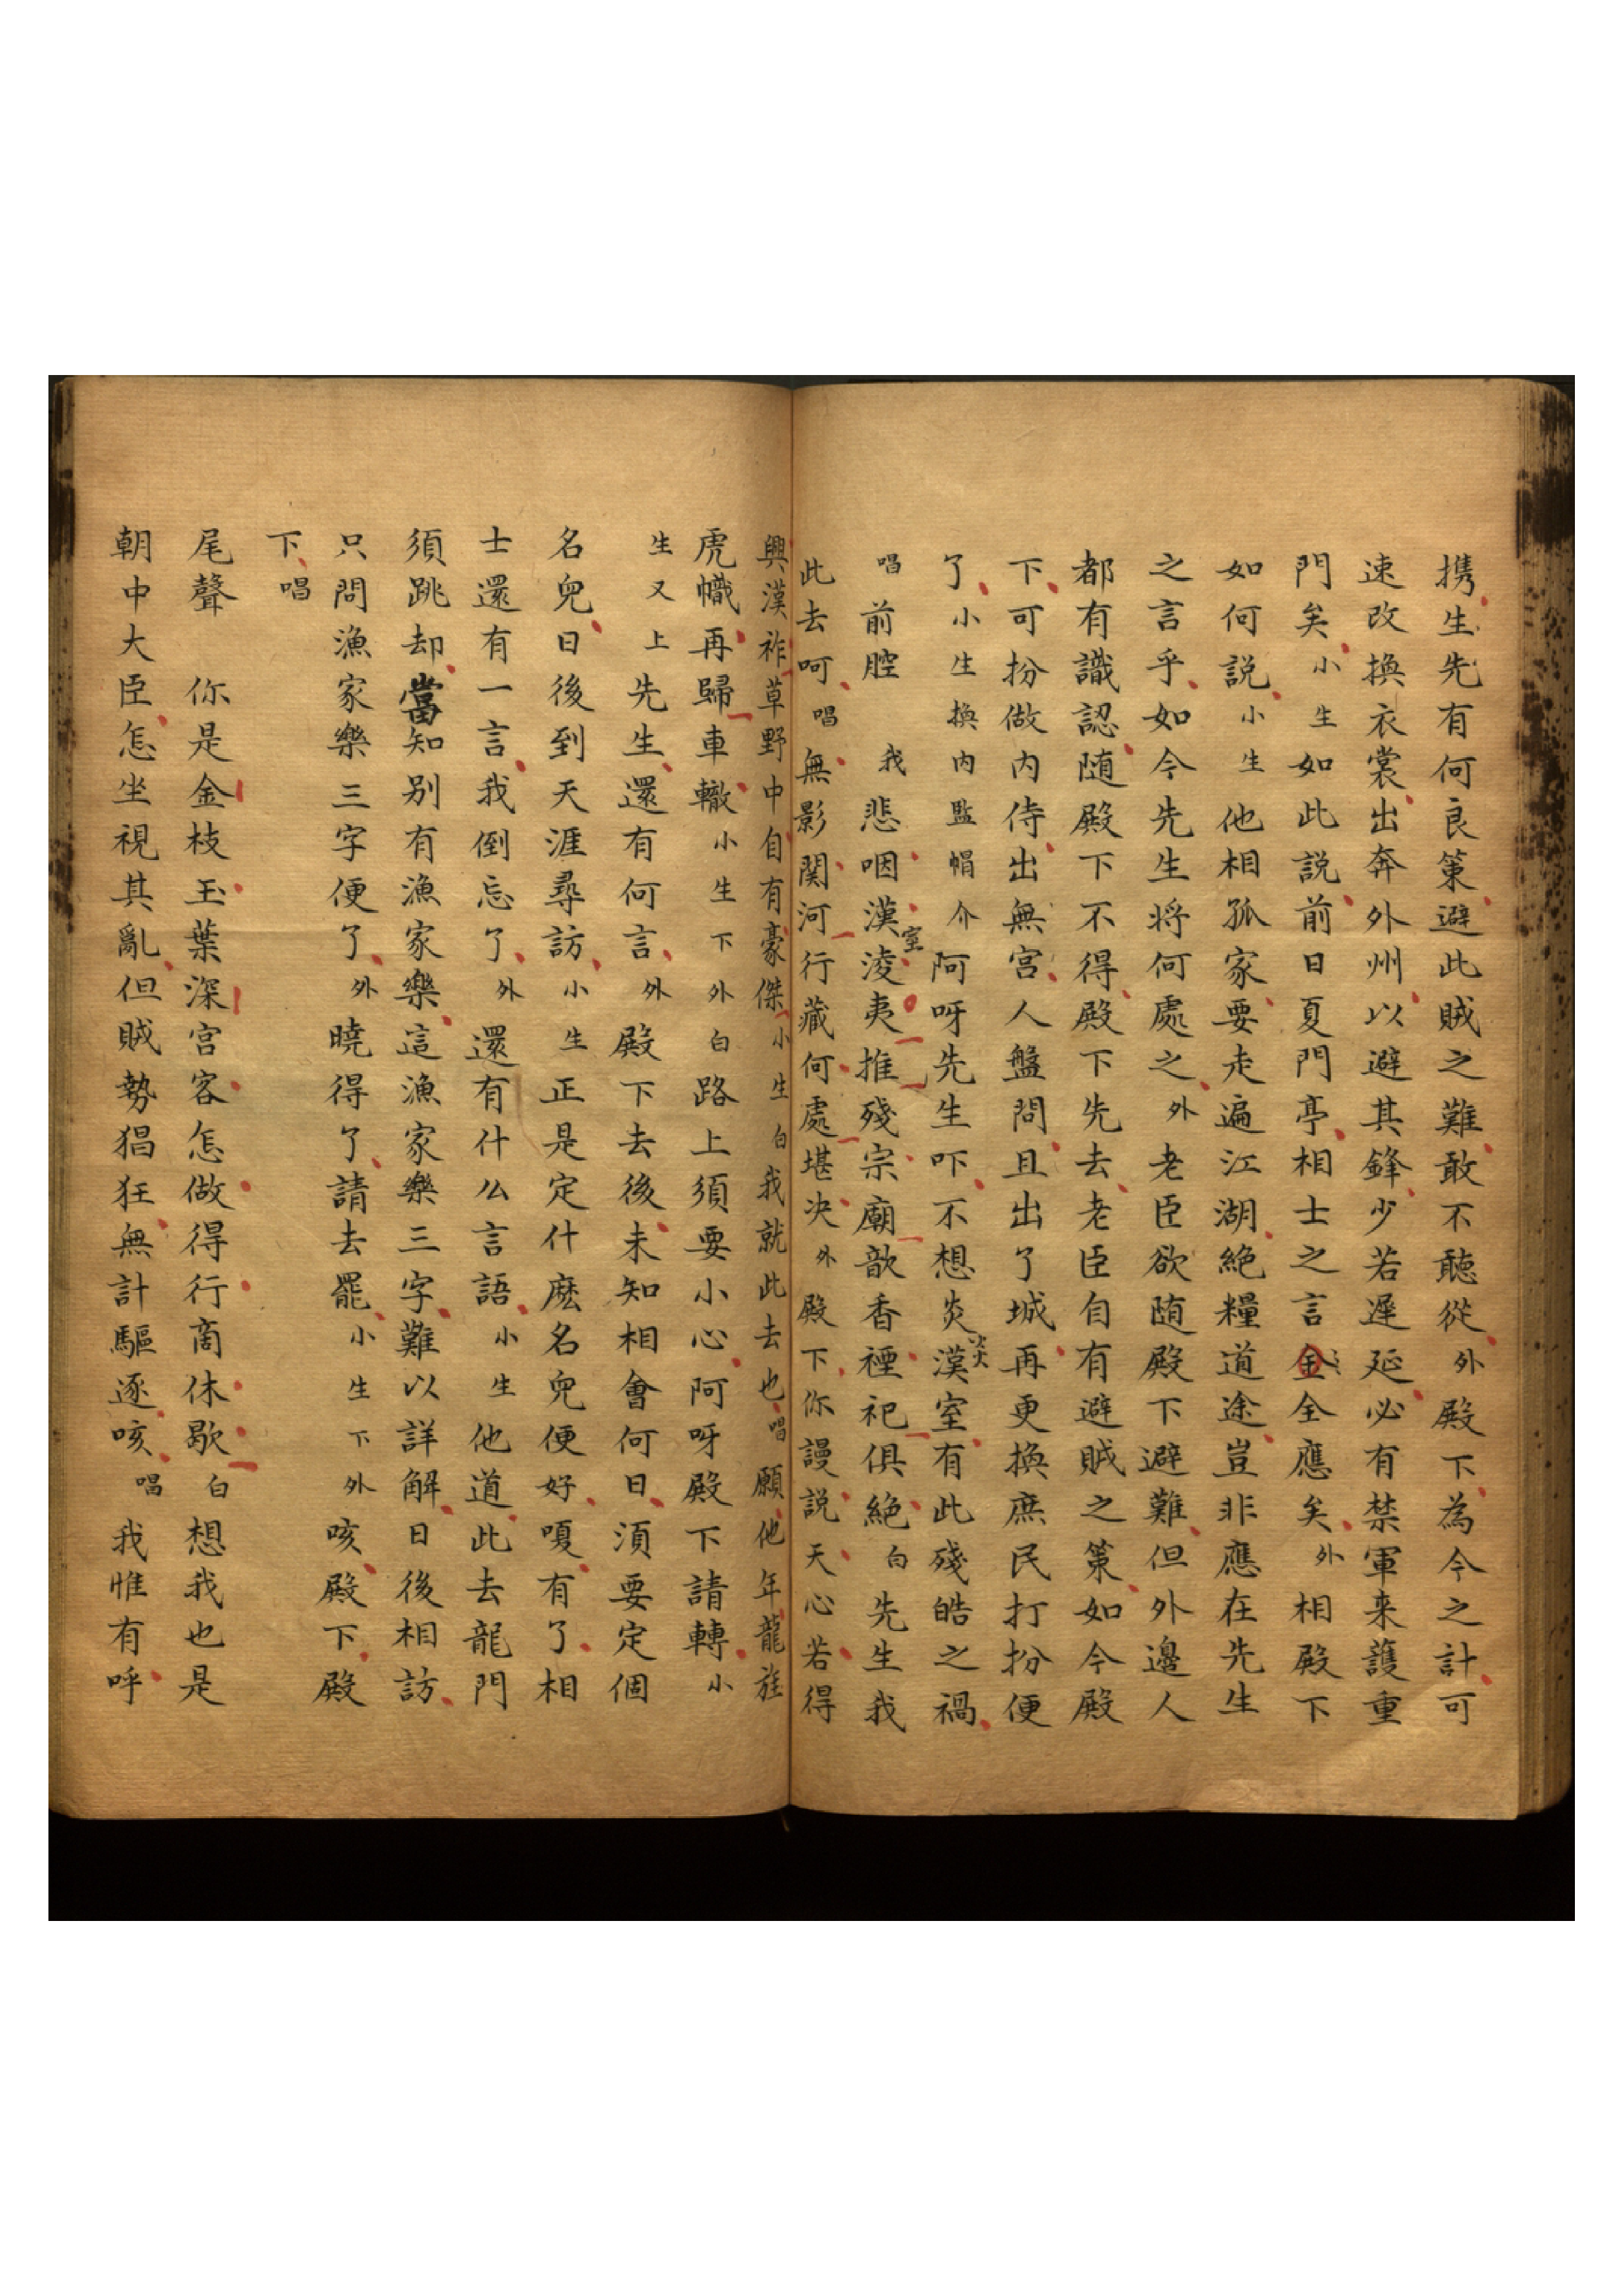 携生先有何良策避此賊之難敢不聽從外殿下為今之計可
速改換衣裳出奔外州以避其鋒少若遲延必有禁軍来護重
門矣小生如此説前日夏門亭相士之言金全應矣外相殿下
如何説小生他相孤家要走遍江湖絶糧道途豈非應在先生
之言乎如今先生将何處之外老臣欲随殿下避難但外邊人
都有識認随殿下不得殿下先去老臣自有避賊之策如今殿
下可扮做内侍出無宫人盤問且出了城再更換庶民打扮便
了小生換内監帽介阿呀先生吓不想炎漢室有此殘皓之禍
唱前腔 我悲咽漢室淩夷推殘宗廟歆香禋祀俱絶白先生我
此去呵唱無影関河行藏何處堪决外殿下你謾説天心若得
興漢祚草野中自有豪傑小生白我就此去也唱願他年龍旌
虎幟再歸車轍小生下外白路上須要小心阿呀殿下請轉小
生又上先生還有何言外殿下去後未知相會何日湏要定個
名兒日後到天涯尋訪小生正是定什麽名兒便好嗄有了相
士還有一言我倒忘了外還有什么言語小生他道此去龍門
須跳却當知别有漁家樂這漁家樂三字難以詳解日後相訪
只問漁家樂三字便了外曉得了請去罷小生下外咳殿下殿
下唱
尾聲 你是金枝玉葉深宫客怎做得行商休歇白想我也是
朝中大臣怎坐視其亂但賊勢猖狂無計驅逐咳唱我惟有呼